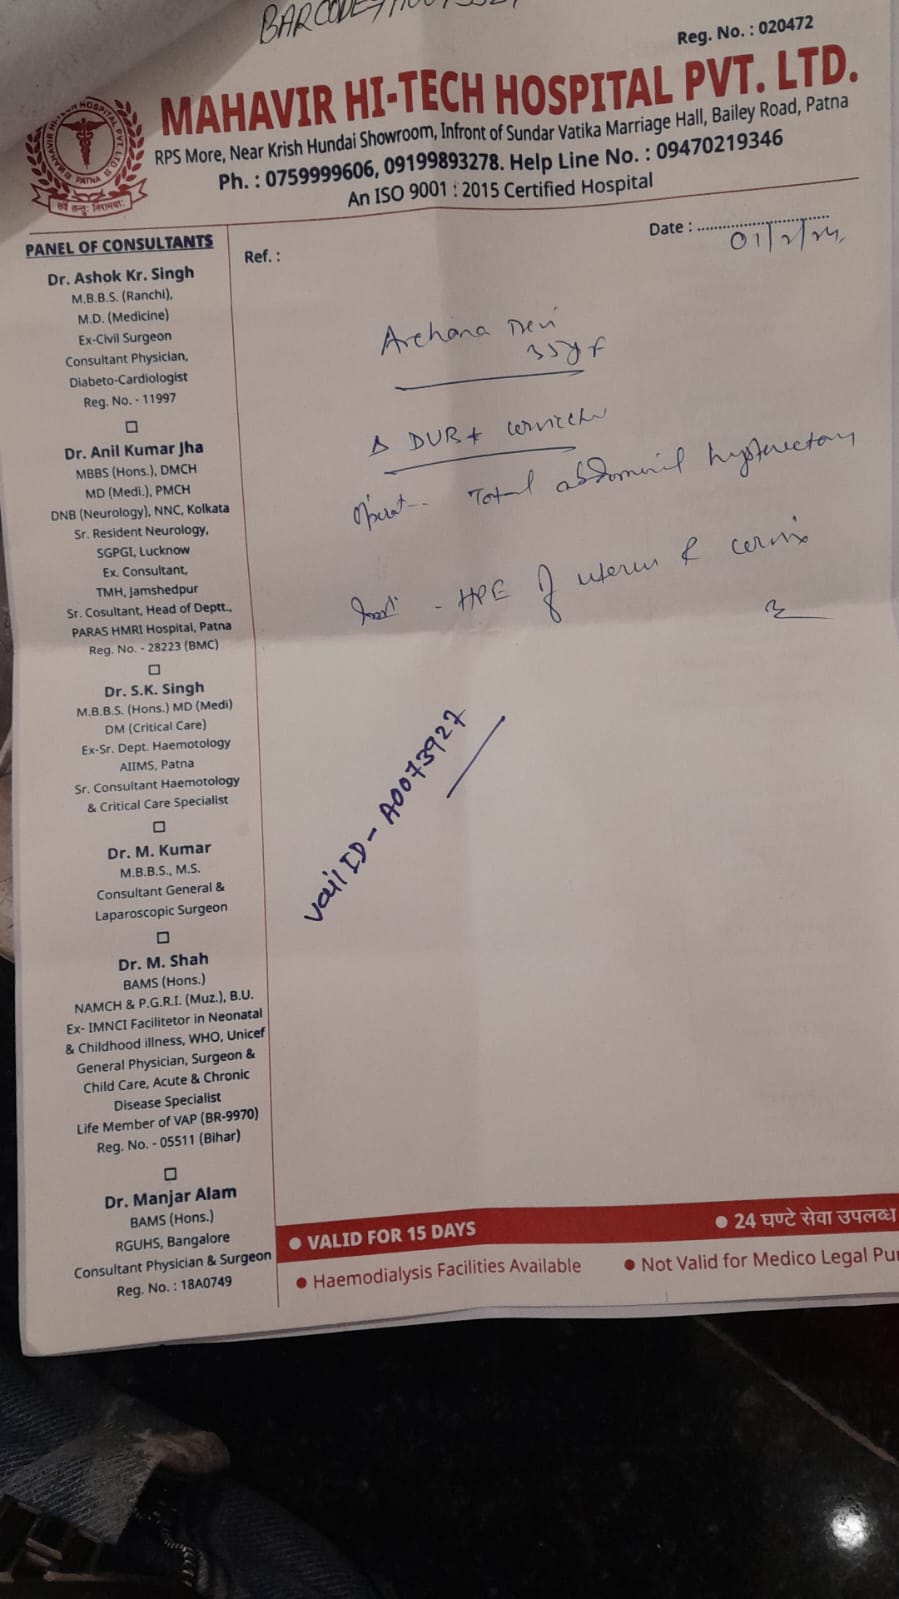 Reg. No. : 020472
MAHAVIR HI-TECH HOSPITAL PVT. LTD.
RPS More, Near Krish Hundai Showroom, Infront of Sundar Vatika Marriage Hall, Bailey Road, Patna
Ph. : 0759999606, 09199893278. Help Line No. : 09470219346
An ISO 9001 : 2015 Certified Hospital
PATNA
PANEL OF CONSULTANTS
Dr. Ashok Kr. Singh
M.B.B.S. (Ranchi),
M.D. (Medicine)
Ex-Civil Surgeon
Consultant Physician,
Diabeto-Cardiologist
Reg. No. - 11997
Dr. Anil Kumar Jha
MBBS (Hons.), DMCH
MD (Medi.), PMCH
DNB (Neurology), NNC, Kolkata
Sr. Resident Neurology,
SGPGI, Lucknow
Ex. Consultant,
TMH, Jamshedpur
Sr. Cosultant, Head of Deptt.,
PARAS HMRI Hospital, Patna
Reg. No. - 28223 (BMC)
Dr. S.K. Singh
M.B.B.S. (Hons.) MD (Medi)
DM (Critical Care)
Ex-Sr. Dept. Haemotology
AIIMS, Patna
Sr. Consultant Haemotology
& Critical Care Specialist
Dr. M. Kumar
M.B.B.S., M.S.
Consultant General &
Laparoscopic Surgeon
Dr. M. Shah
BAMS (Hons.)
NAMCH & P.G.R.I. (Muz.), B.U.
Ex- IMNCI Facilitetor in Neonatal
& Childhood illness, WHO, Unicef
General Physician, Surgeon &
Child Care, Acute & Chronic
Disease Specialist
Life Member of VAP (BR-9970)
Reg. No. - 05511 (Bihar)
Dr. Manjar Alam
BAMS (Hons.)
RGUHS, Bangalore
Consultant Physician & Surgeon
Reg. No. : 18A0749
Ref. :
Date :
Archana Devi
35y F
Δ DUB + cervicitis
Total abdominal hysterectomy
- HPE of uterus & cervix
Vail ID - A0073927
VALID FOR 15 DAYS
24 घण्टे सेवा उपलब्ध
Haemodialysis Facilities Available
Not Valid for Medico Legal Pu